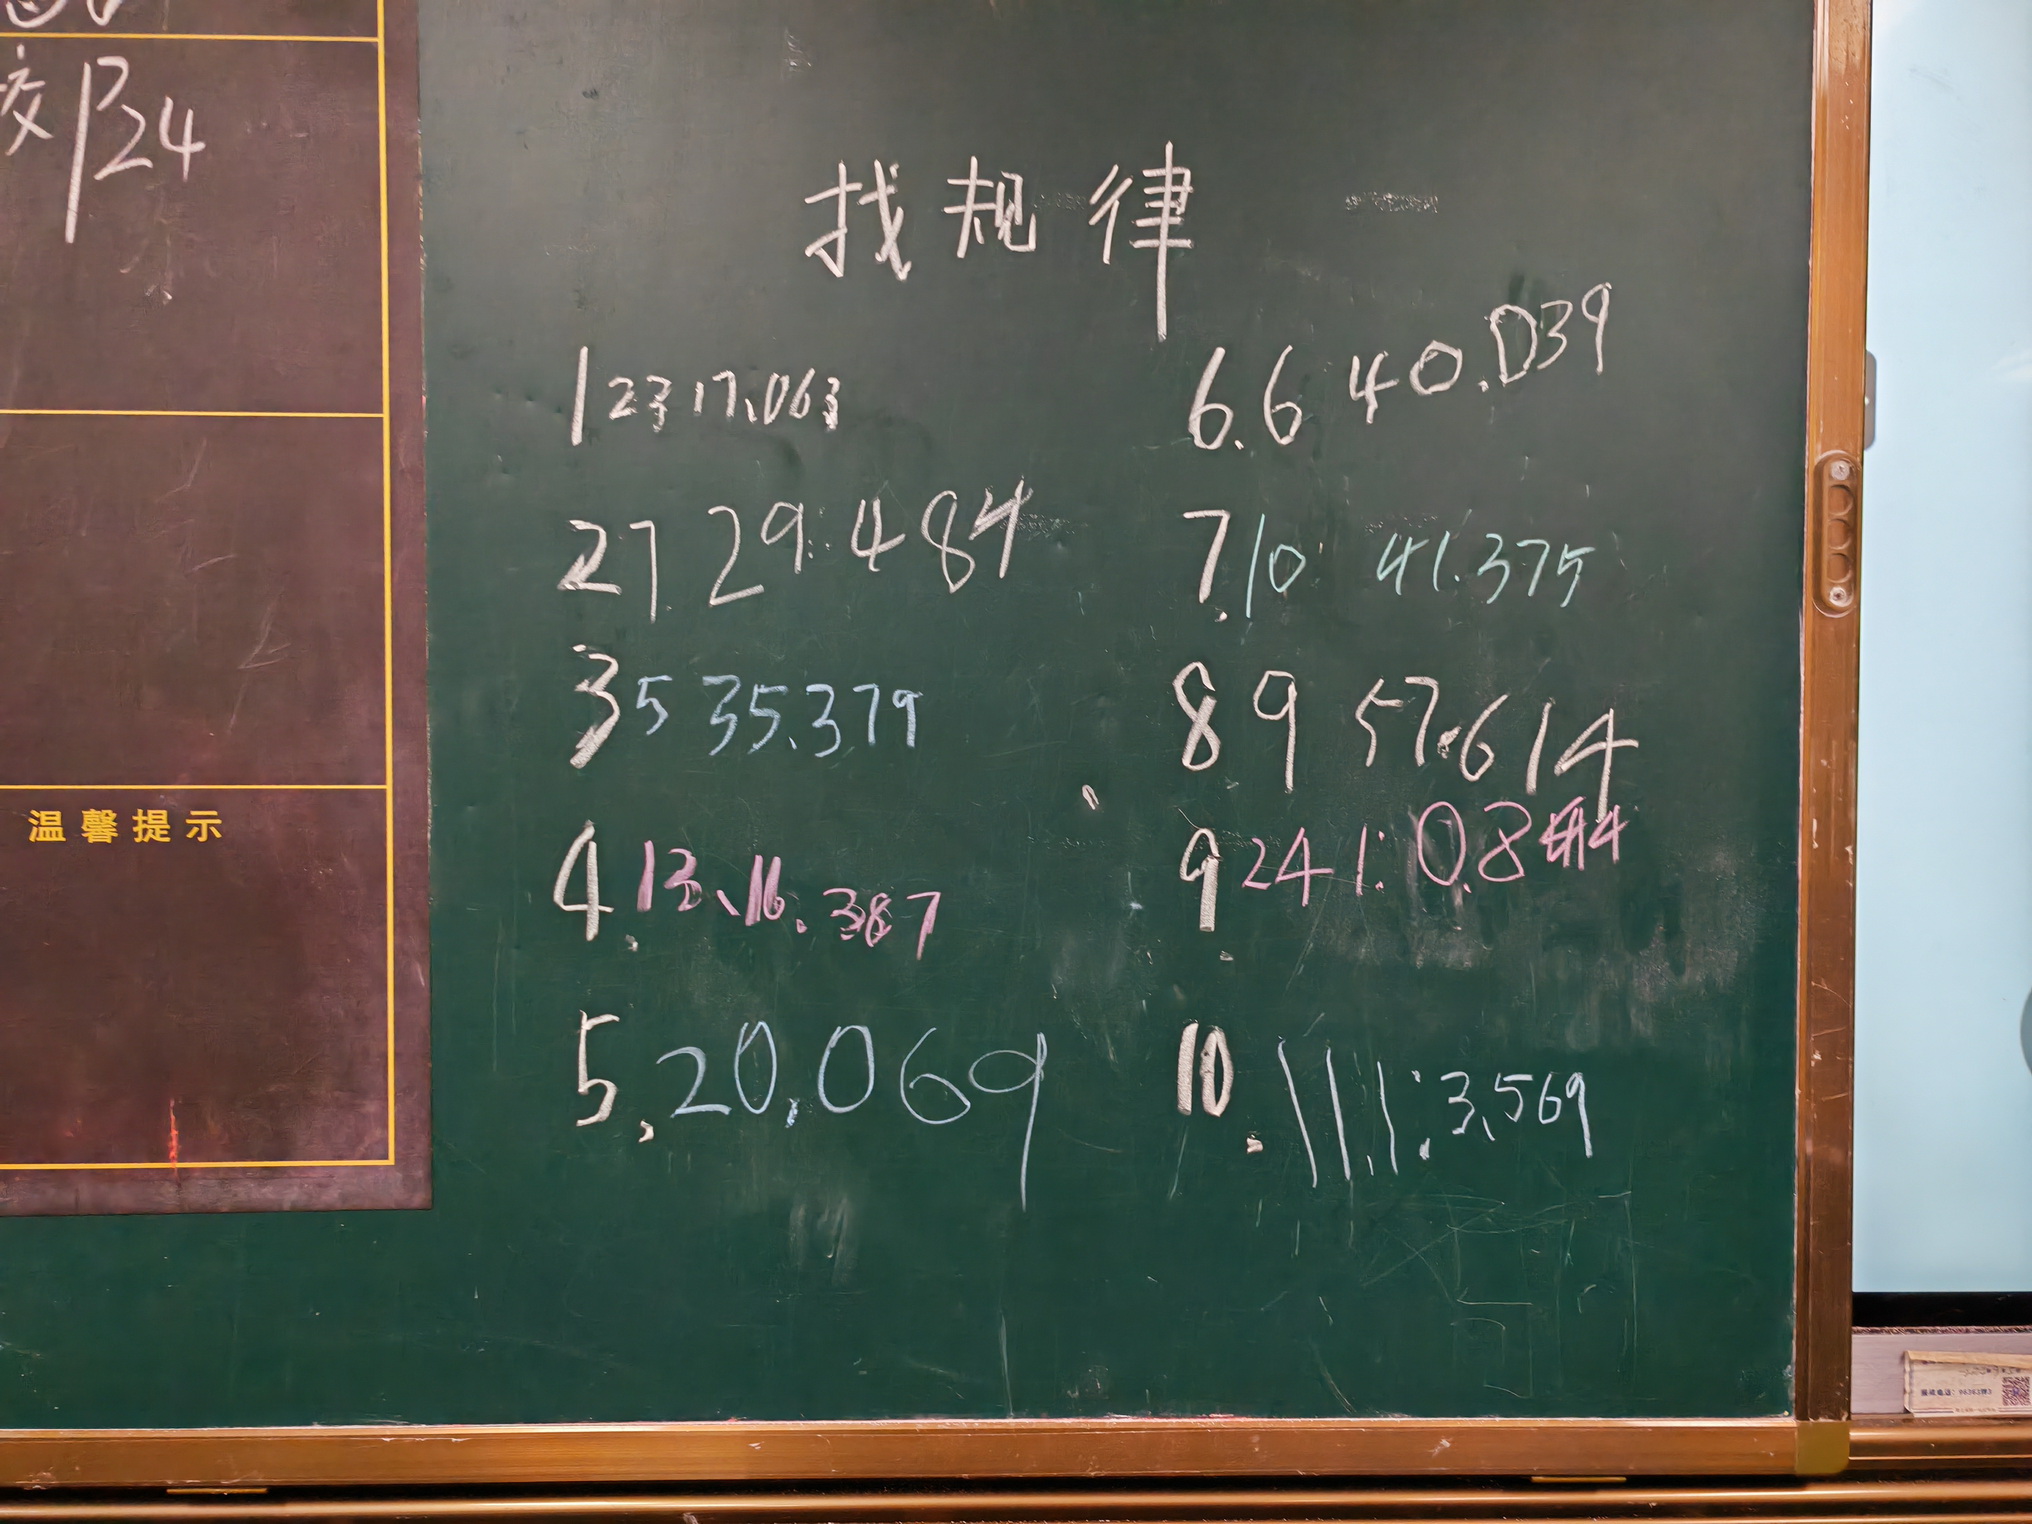 P24
温馨提示
找规律
1 23 17.063
2 7 29.484
3 5 35.379
4. 13. 16.387
5. 20.069
6. 6 40.039
7. 10 41.375
8 9 57.614
9. 241: 0.8 4
10. 111: 3.569